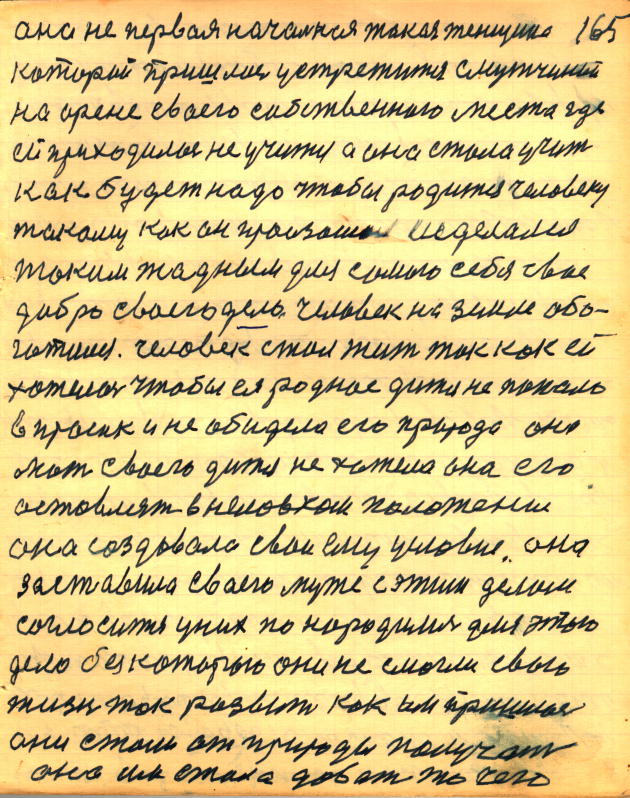 она не первая началася такая женщина 165
которой пришлос устретитися смущиной
на арене своего собственного места где
ей приходилос не учитися а она стала учит
как будет надо чтобы родится человеку
такому как он произошол исделался
таким жадным для самого себя свое
добро своего дела. человек на земле обо-
гатился. человек стал жит так как ей
хотелос чтобы ея родное дитя не попало
в просак и не обидела его природа она
мат своего дитя не хотела она его
оставлят в неловком положении
она создовала свои ему условие. она
заставила своего мужа с этим делом
согласится у них по народился для этого
дело без которого они не смогли свою
жизн так развит как им пришлос
они стали от природы получат
она им стала доват то чего